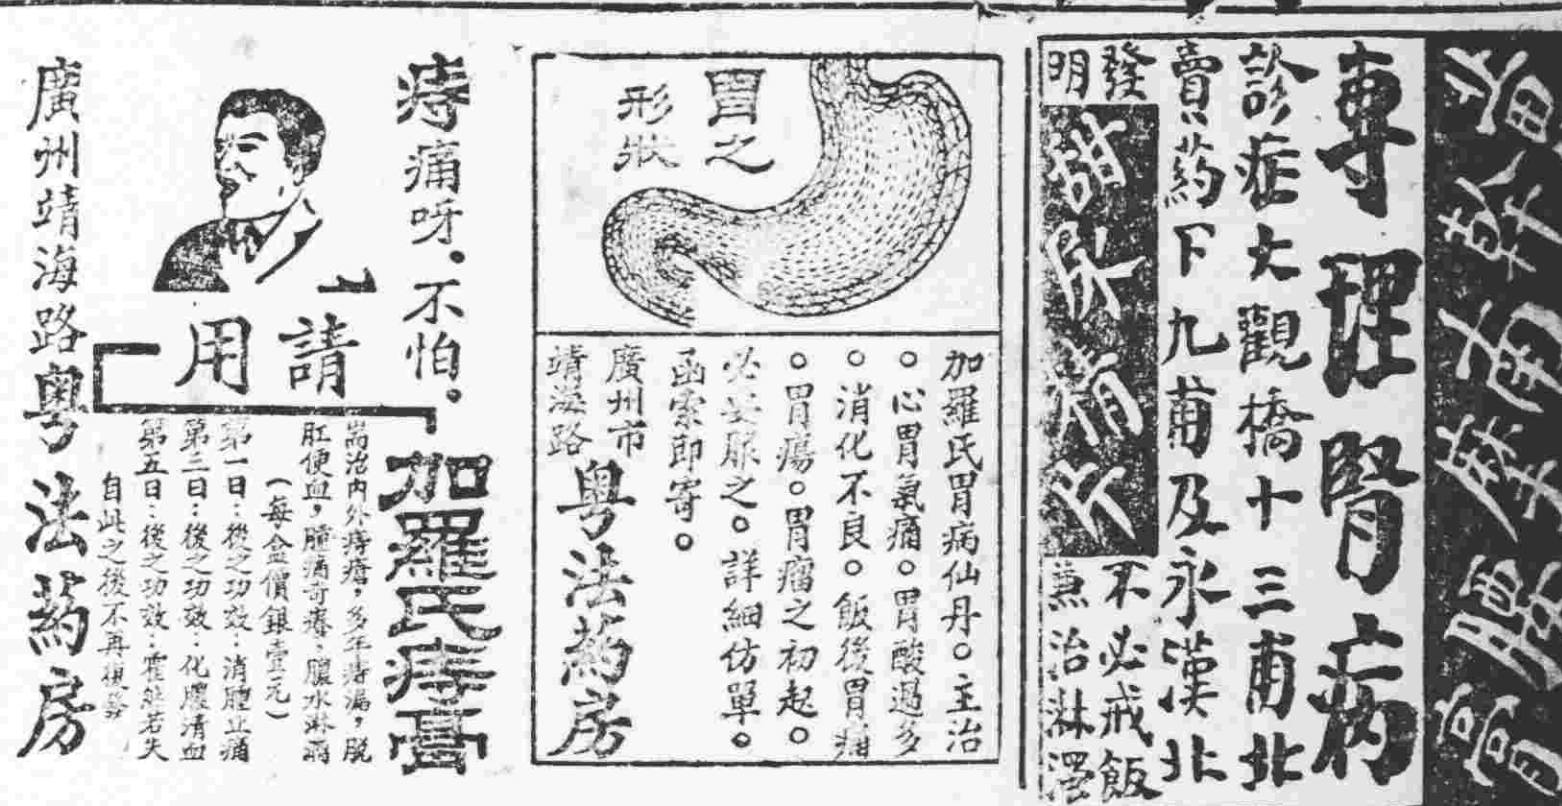 專理腎病
診症大觀橋十三甫北
賣葯下九甫及永漢北
發明
甜
精片
不必戒飯
兼治淋濁
胃之
形狀
加羅氏胃病仙丹。主治
。心胃氣痛。胃酸過多
。消化不良。飯後胃痛
。胃瘍。胃瘤之初起。
必妥服之。詳細仿單。
函索即寄。
廣州市
靖海路
粵法葯房
痔痛呀.不怕.
請用
加羅氏痔膏
耑治內外痔瘡,多年痔漏,脫
肛便血,腫痛奇癢,膿水淋漓
(每盒價銀壹元)
第一日:後之功效:消腫止痛
第三日:後之功效:化膿清血
第五日:後之功效:霍然若失
自此之後不再復發
廣州靖海路粵法葯房